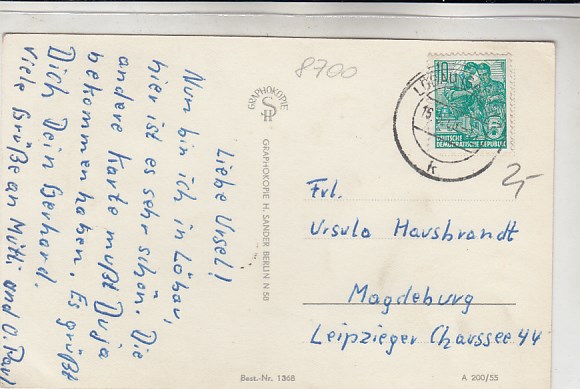 Liebe Ursel!
Nun bin ich in Löbau,
hier ist es sehr schön. Die
andere Karte mußt Du ja
bekommen haben. Es grüßt
Dich Dein Gerhard.
Viele Grüße an Mutti und O. Paul
8700
GRAPHOKOPIE
SH
GRAPHOKOPIE H. SANDER BERLIN N 58
10
DEUTSCHE
DEMOKRATISCHE REPUBLIK
k
2,-
Frl.
Ursula Hausbrandt
Magdeburg
Leipzieger Chaussee 44
Best.-Nr. 1368
A 200/55